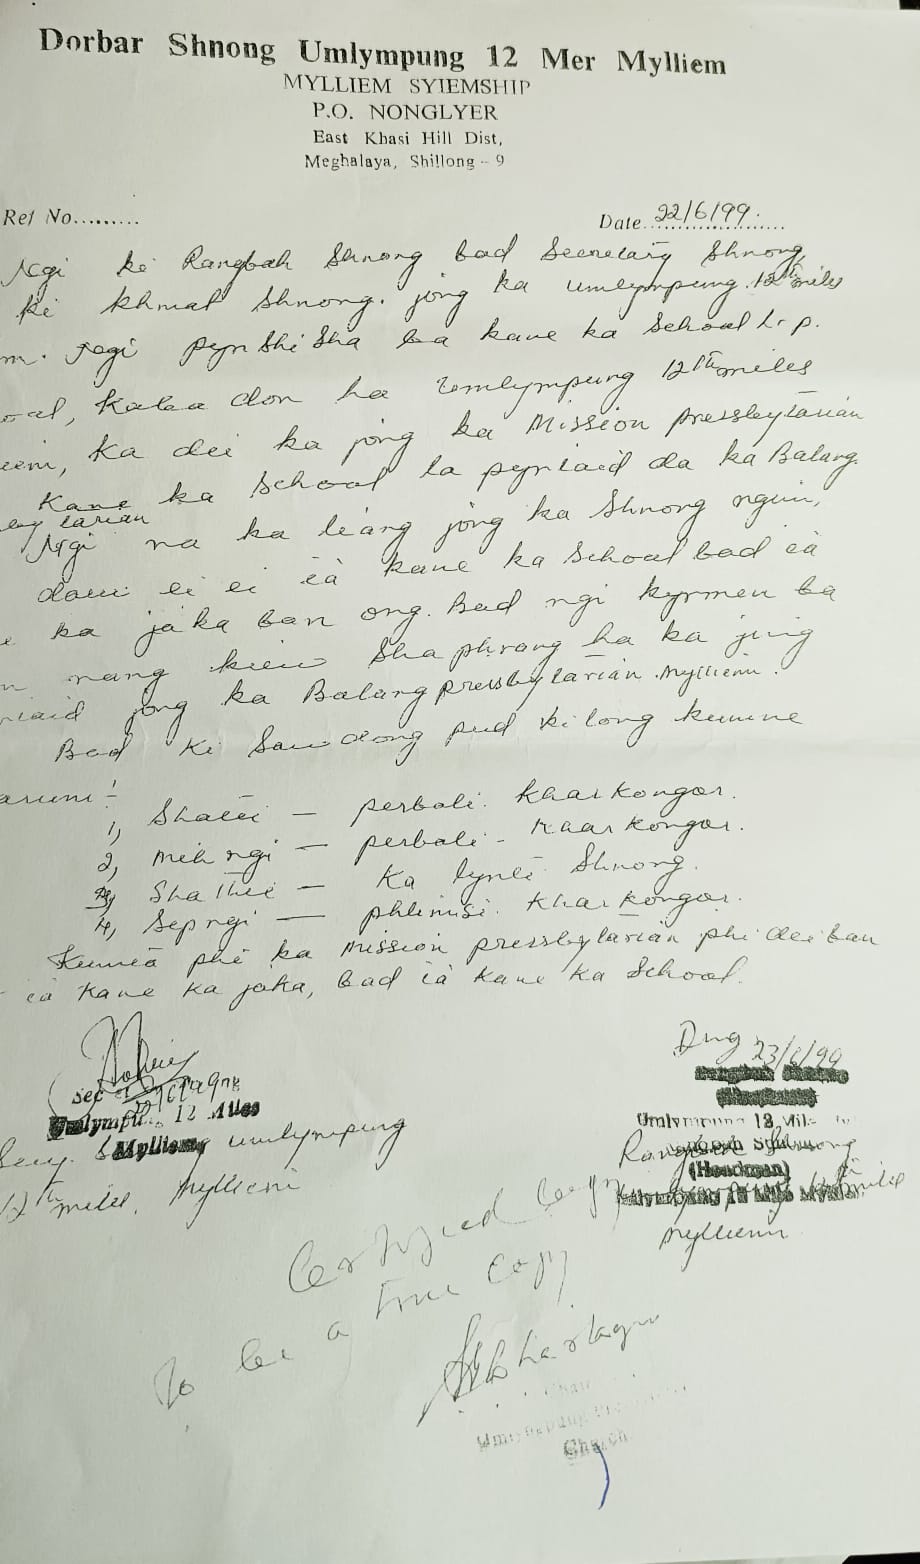 Dorbar Shnong Umlympung 12 Mer Mylliem
MYLLIEM SYIEMSHIP
P.O. NONGLYER
East Khasi Hill Dist,
Meghalaya, Shillong - 9
Ref No.........
Date 22/6/99.
Ngi ki Rangbah Shnong bad Secretary Shnong,
ki khmat Shnong. jong ka Umlympung. 12th miles
m. Ngi pynshisha ba kane ka School L.p.
ool, kaba don ha Umlympung 12th miles
iem, ka dei ka jong ka Mission presbytarian
Kane ka School la pyniaid da ka Balang
by tarian
Ngi na ka liang jong ka Shnong ngim,
dawi ei ei ia kane ka School bad ia
e ka jaka ban ong. Bad ngi kyrmen ba
n nang kiew Shaphrang ha ka jing
niaid jong ka Balang presbytarian Mylliem.
Bad ki Saw dong pud ki long kumne
arum :-
1, Shatei - perbali. Kharkongor.
2, mih ngi - perbali - Kharkongor.
3, Sha Thie - Ka lynti Shnong.
4, Sep ngi - phlinisi. Kharkongor.
Kumta phi ka Mission presbytarian phi dei ban
ia kane ka jaka, bad ia kane ka School.
Umlympung 12 Miles
Mylliem
Secy. Umlympung
12th miles, Mylliem
23/6/99
Umlympung 12 Mile
Rangbah Shnong
(Headman)
miles
Mylliem
Certified copy
To be a True Copy
Church